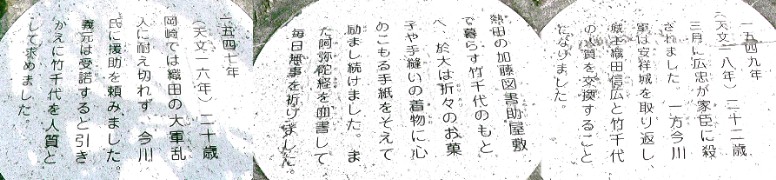 一五四七年
(天文一六年) 二十歳
岡崎では織田の大軍乱
入に耐え切れず、今川
氏に援助を頼みました。
義元は受諾すると引き
かえに竹千代を人質と
して求めました。
熱田の加藤図書助屋敷
で暮らす竹千代のもと
へ、於大は折々のお菓
子や手縫いの着物に心
のこもる手紙をそえて
励まし続けました。ま
た阿弥陀経を血書して、
毎日無事を祈りました。
一五四九年
(天文一八年) 二十二歳
三月に広忠が家臣に殺
されました 一方今川
軍は安祥城を取り返し、
城主織田信広と竹千代
の人質を交換すること
になりました。